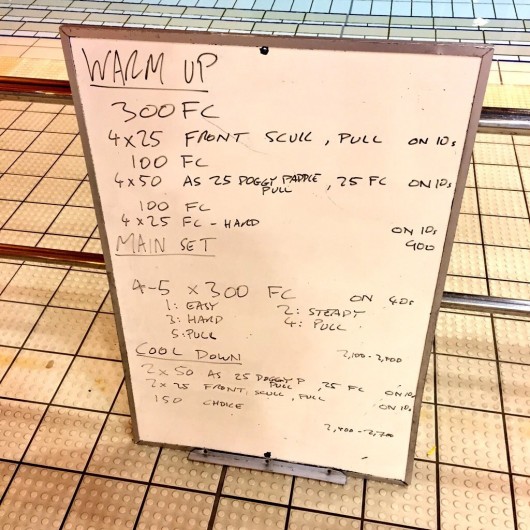 WARM UP
300 FC
4x25 FRONT SCULL, PULL ON 10s
100 FC
4x50 AS 25 DOGGY PADDLE PULL, 25 FC ON 10s
100 FC
4x25 FC - HARD ON 10s
900
MAIN SET
4-5 x 300 FC ON 40s
1: EASY 2: STEADY
3: HARD 4: PULL
5: PULL
COOL DOWN 2,100-2,400
2x50 AS 25 DOGGY P PULL, 25 FC ON 10s
2x25 FRONT SCULL, PULL ON 10s
150 CHOICE
2,400-2,700